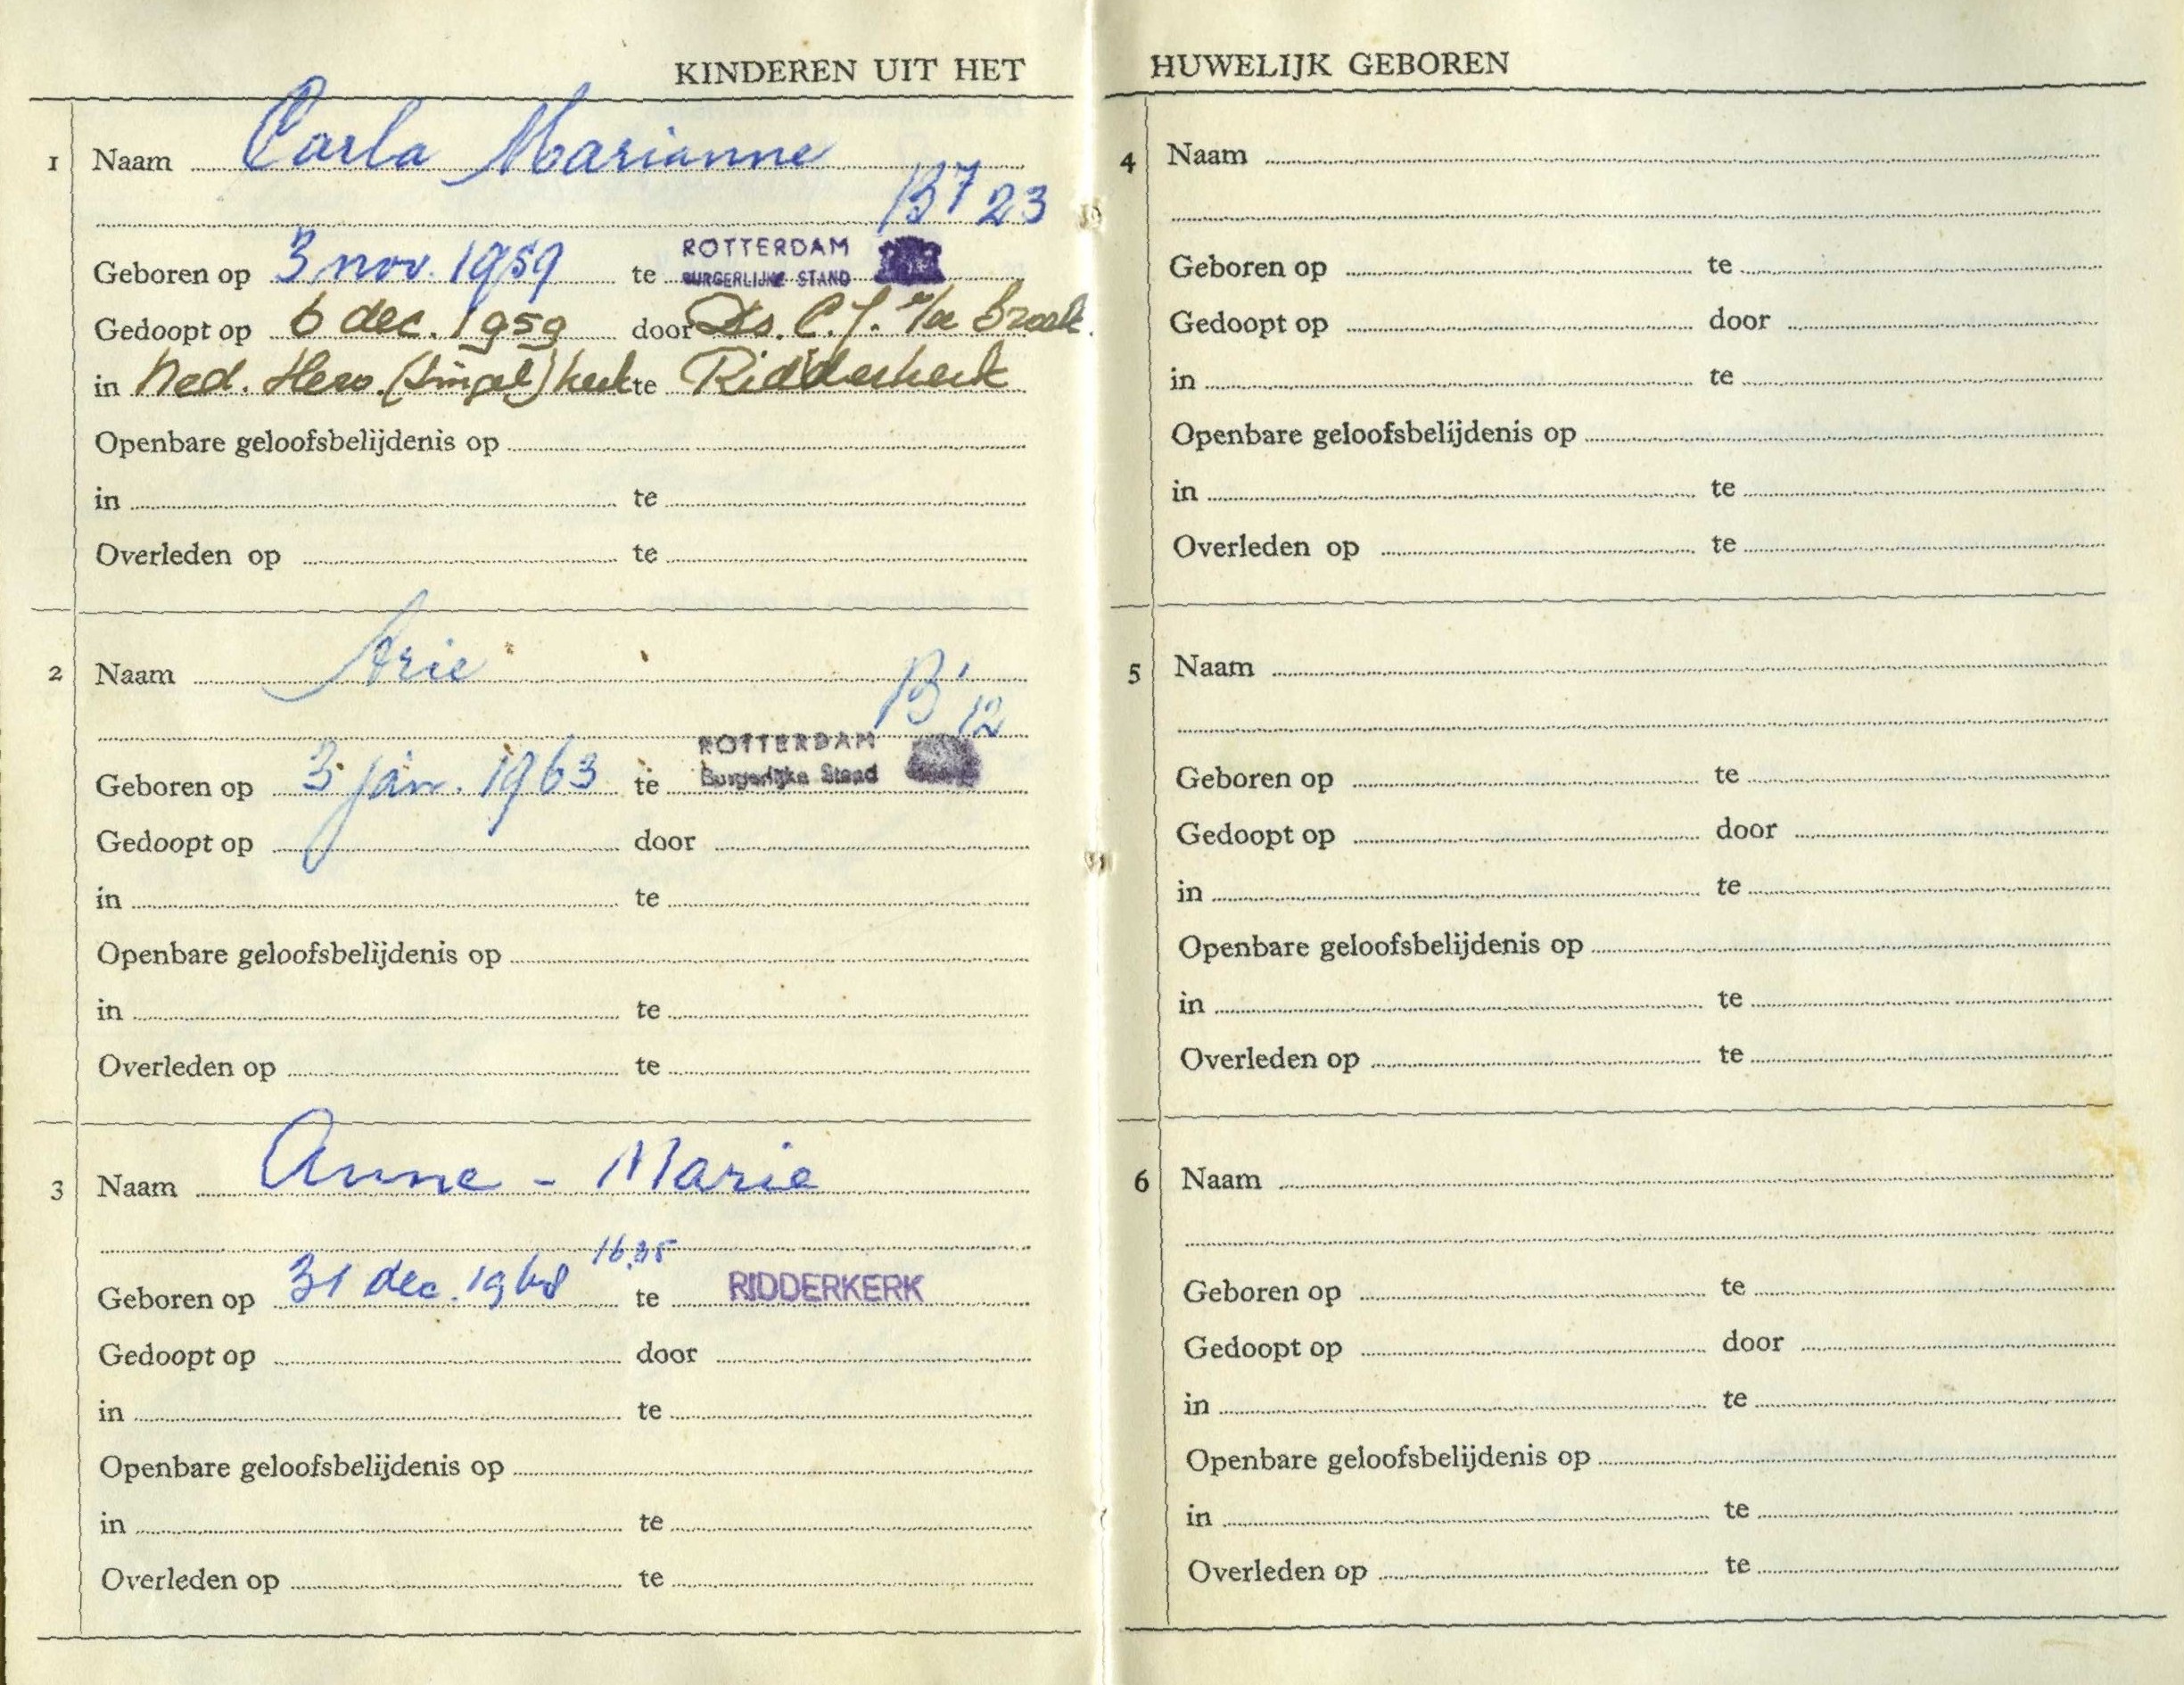 KINDEREN UIT HET HUWELIJK GEBOREN
1 Naam Carla Marianne
B7 23
Geboren op 3 nov. 1959 te ROTTERDAM
BURGERLIJKE STAND
Gedoopt op 6 dec. 1959 door Ds. C.J. v/d Broek.
in Ned. Herv. (Singel) kerk te Ridderkerk
Openbare geloofsbelijdenis op
in te
Overleden op te
2 Naam Arie
B1
12
ROTTERDAM
Geboren op 3 jan. 1963 te Burgerlijke Stand
Gedoopt op door
in te
Openbare geloofsbelijdenis op
in te
Overleden op te
3 Naam Anne - Marie
16.35
Geboren op 31 dec. 1968 te RIDDERKERK
Gedoopt op door
in te
Openbare geloofsbelijdenis op
in te
Overleden op te
4 Naam
Geboren op te
Gedoopt op door
in te
Openbare geloofsbelijdenis op
in te
Overleden op te
5 Naam
Geboren op te
Gedoopt op door
in te
Openbare geloofsbelijdenis op
in te
Overleden op te
6 Naam
Geboren op te
Gedoopt op door
in te
Openbare geloofsbelijdenis op
in te
Overleden op te